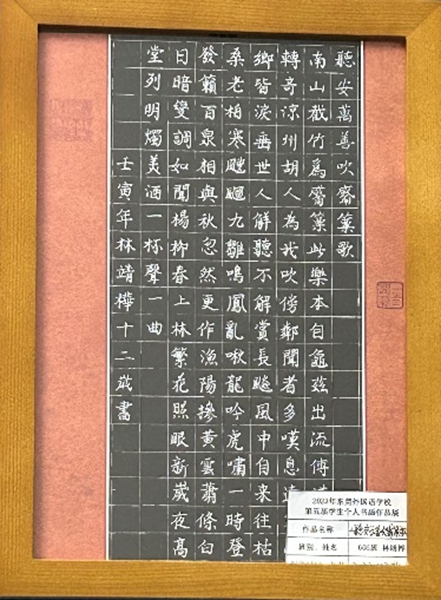 聽安萬善吹觱篥歌
南山截竹為觱篥此樂本自龜茲出流傳
轉奇涼州胡人為我吹傍鄰聞者多嘆息
鄉皆淚垂世人解聽不解賞長飆風中自来往枯
桑老柏寒颼飀九雛鳴鳳亂啾龍吟虎嘯一時登
發籟百泉相與秋忽然更作漁陽摻黃雲蕭條白
日暗變調如聞楊柳春上林繁花照眼新歲夜高
堂列明燭美酒一杯聲一曲
壬寅年林靖樺十二歲書
2023年东莞外国语学校
第五届学生个人书画作品展
作品名称
班别、姓名 606班 林靖桦